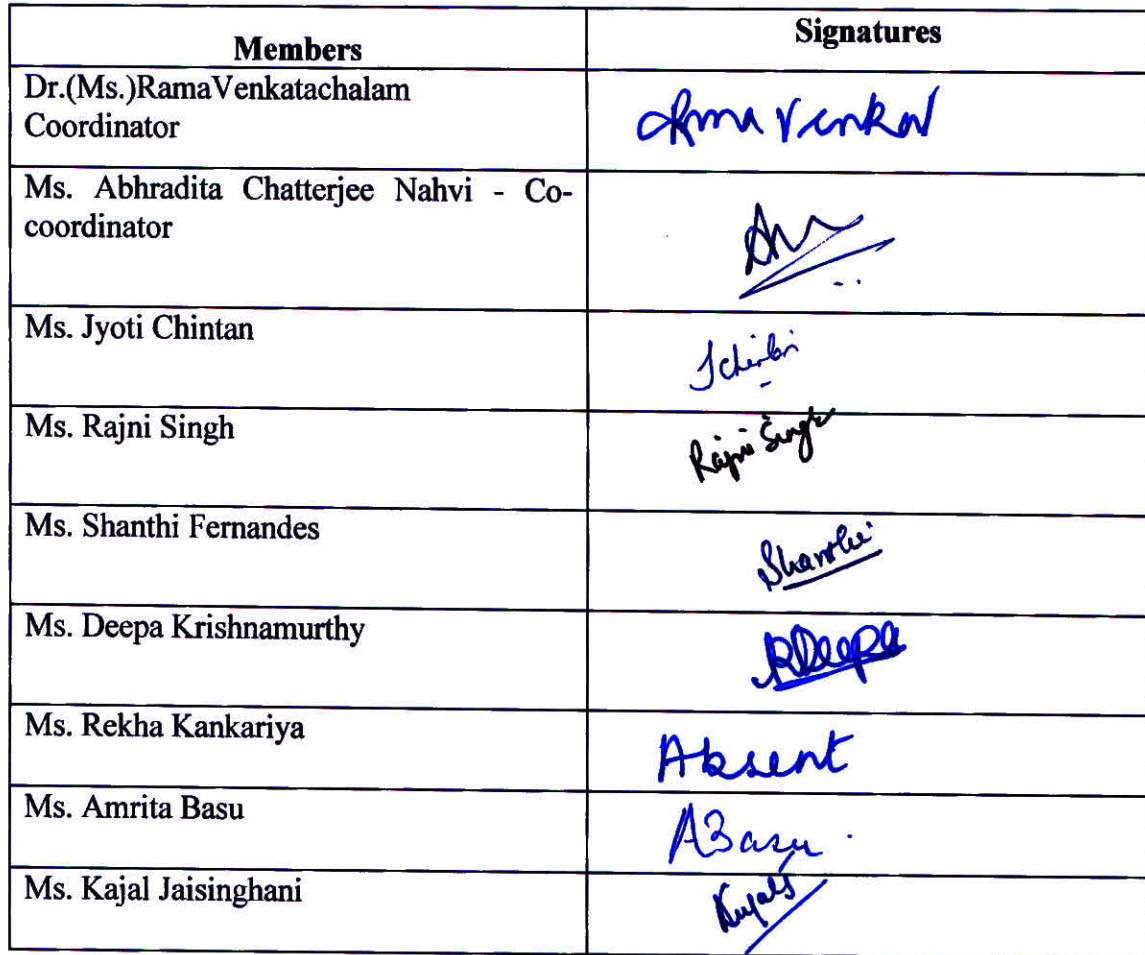 Members Signatures
Dr.(Ms.)RamaVenkatachalam
Coordinator
Rama Venkat
Ms. Abhradita Chatterjee Nahvi - Co-
coordinator
Ms. Jyoti Chintan
Ms. Rajni Singh
Rajni Singh
Ms. Shanthi Fernandes
Shanthi
Ms. Deepa Krishnamurthy
RDeepa
Ms. Rekha Kankariya
Absent
Ms. Amrita Basu
ABasu
Ms. Kajal Jaisinghani